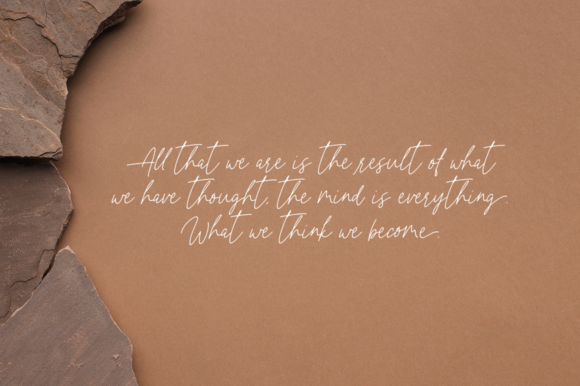 All that we are is the result of what
we have thought, the mind is everything.
What we think we become.